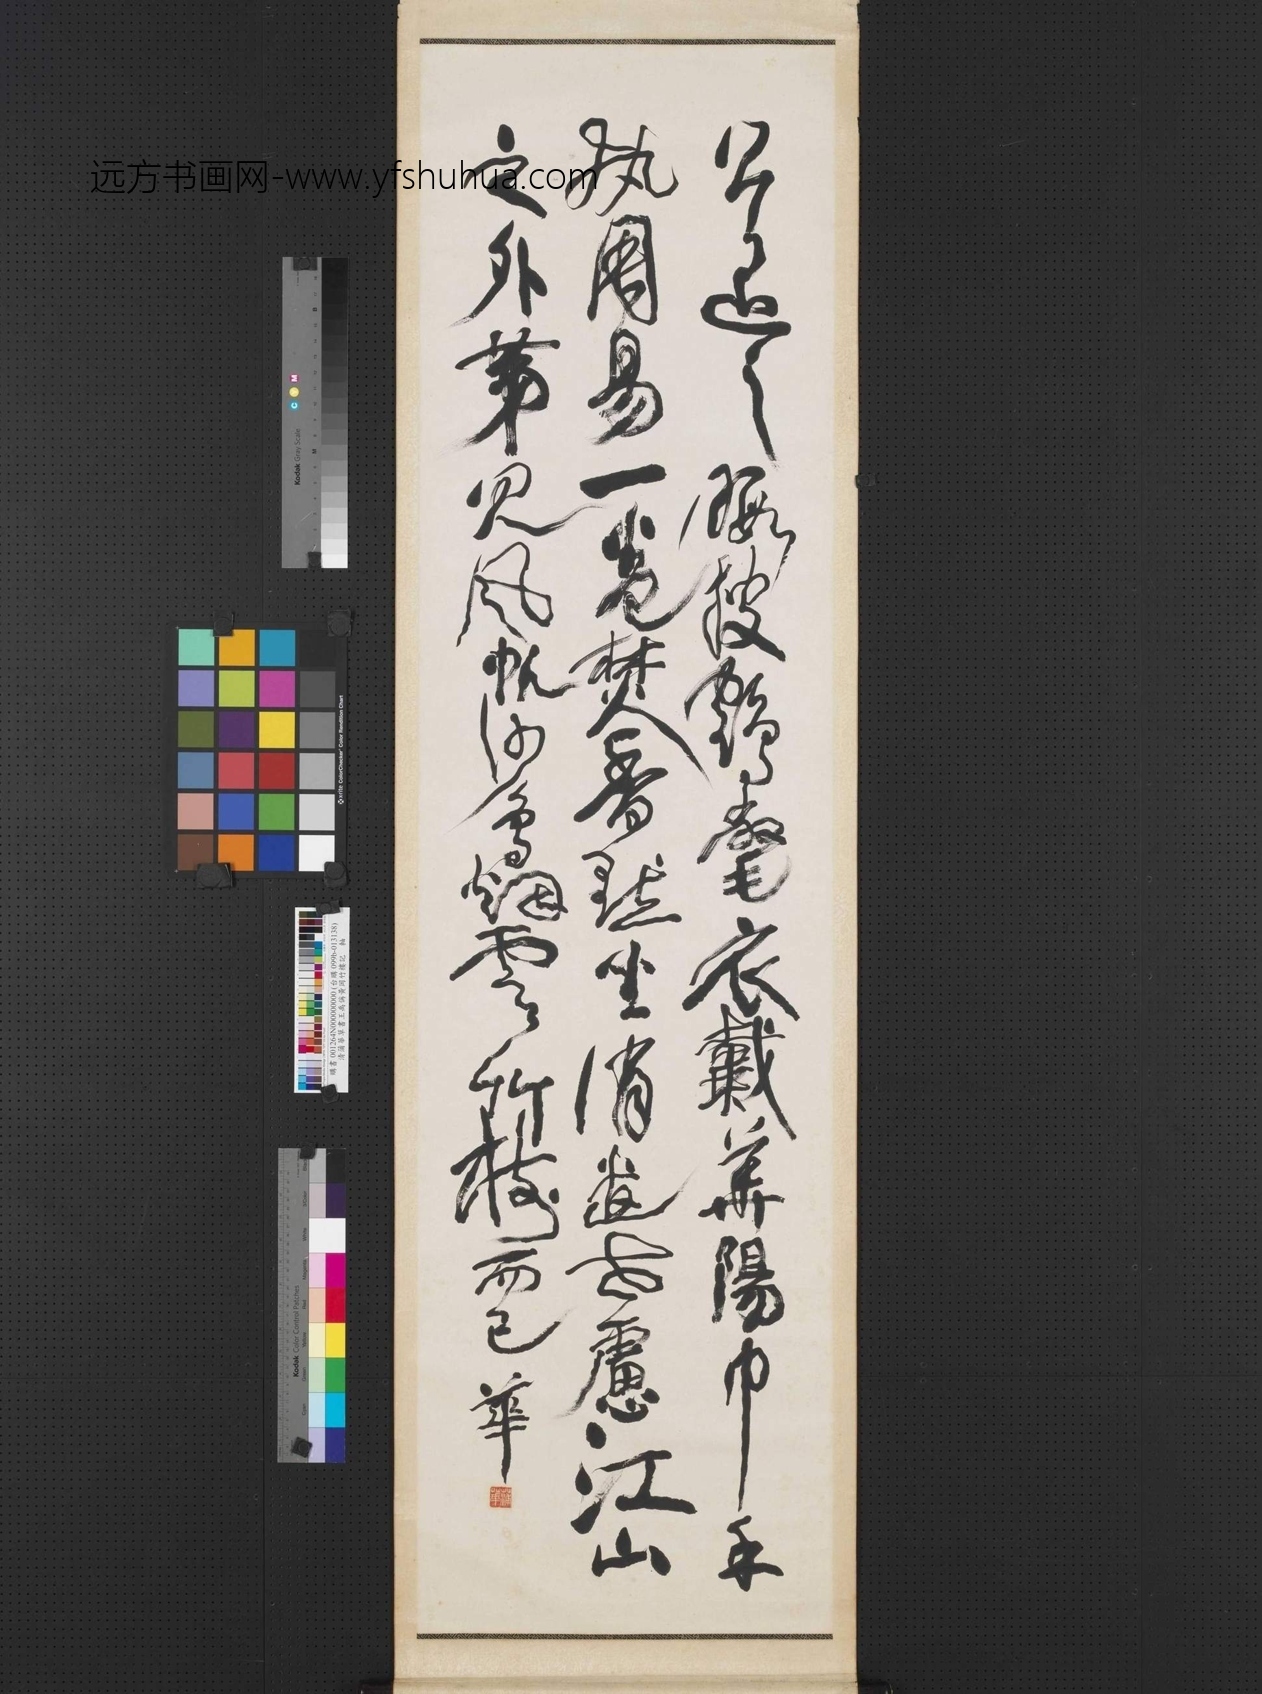 公退之暇披鶴氅衣戴華陽巾手
執周易一卷焚香默坐消遣世慮江山
之外第見風帆沙鳥煙雲竹樹而已 華
远方书画网-www.yfshuhua.com
Kodak Gray Scale
C Y M
x-rite ColorChecker Color Rendition Chart
Kodak Color Control Patches